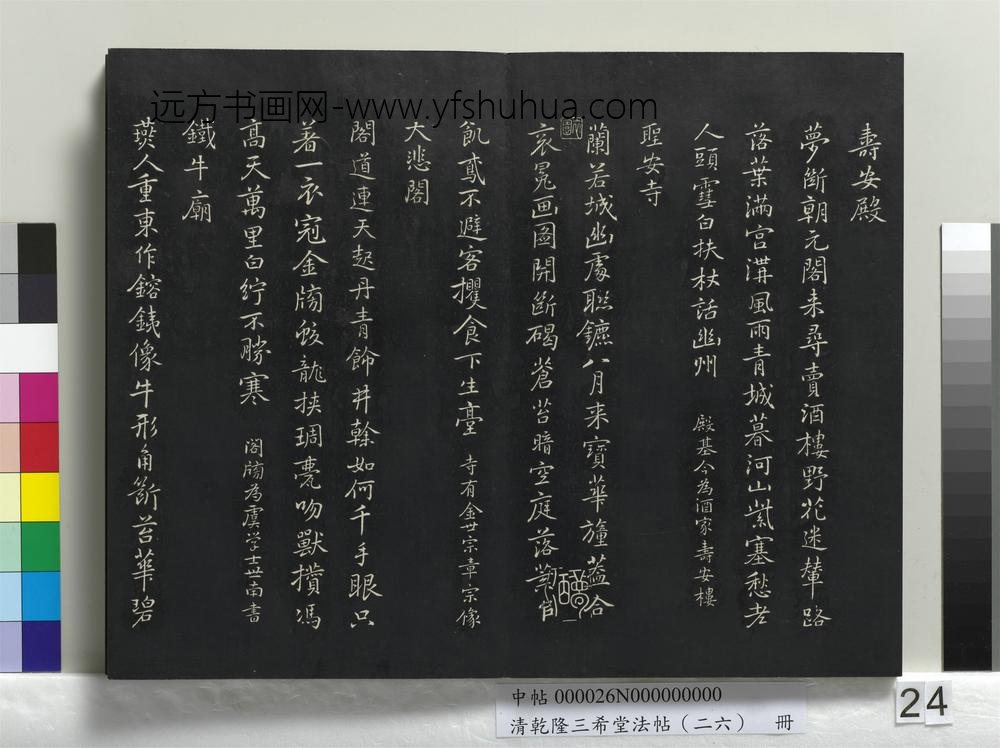 壽安殿
夢斷朝元閣来尋賣酒樓野花迷輦路
落葉滿宮溝風雨青城暮河山紫塞愁老
人頭雪白扶杖話幽州 殿基今為酒家壽安樓
聖安寺
蘭若城幽處聯鑣八月来寶華幢蓋合
衮冕画圖開斷碣蒼苔暗空庭落葉
飢鳶不避客攫食下生臺 寺有金世宗章宗像
大悲閣
閣道連天起丹青飾井榦如何千手眼只
著一衣冠金牓蛟龍挾琱甍吻獸攢馮
高天萬里白紵不勝寒 閣牓為虞学士世南書
鐵牛廟
燕人重東作鎔鐵像牛形角斷苔華碧
远方书画网-www.yfshuhua.com
中帖 000026N000000000
清乾隆三希堂法帖（二六） 冊
24